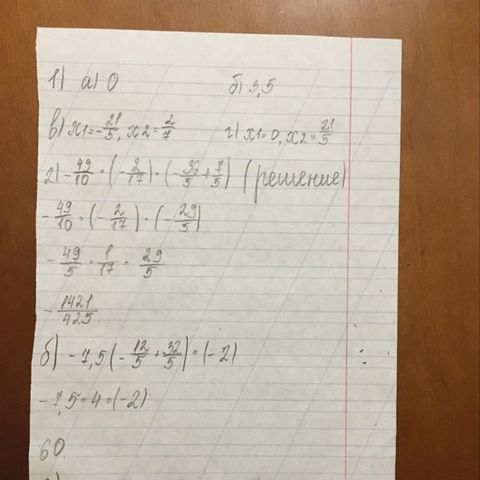 1) а) 0 б) 3,5
в) x1=-21/5, x2=2/7 г) x1=0, x2=21/5
2) -49/10 · (-2/17) · (-36/5+7/5) (решение)
-49/10 · (-2/17) · (-29/5)
-49/5 · 1/17 · 29/5
-1421/425
б) -7,5(-12/5+32/5) · (-2)
-7,5 · 4 · (-2)
60